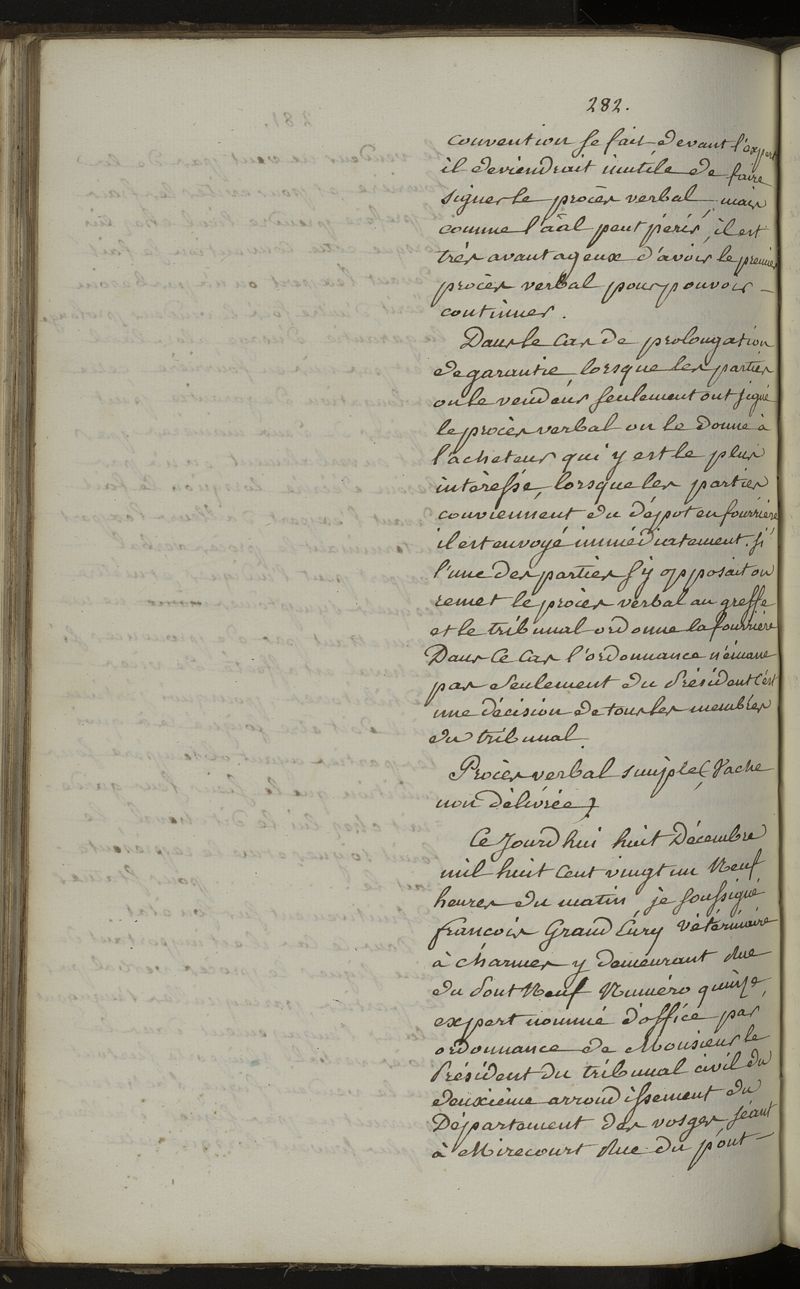 282.
convention se fait devant l'expert
il deviendrait inutile de faire
signer le procès verbal, mais
comme l'aâl peut périr, il est
très avantageux d'avoir le premier
procès verbal pour pouvoir –
continuer.
Dans le cas de prolongation
de garantie lorsque les parties
ou le vendeur seulement ont signé
le procès verbal on le donne à
l'acheteur qui y est le plus
intéressé, lorsque les parties
conviennent du dépot en fourrière
il est envoyé immédiatement. Si
l'une des parties s'y opposait on
remet le procès verbal au greffe
et le tribunal ordonne la fourrière
Dans ce cas l'ordonnance n'émane
pas seulement du Président c'est
une décision de tous les membres
du tribunal.
Procès verbal simple (Vache
non délivrée)
Ce Jourdhui huit Décembre
mil huit cent vingt un Neuf
heures du matin, je soussigné
francois Grand Cury Vétérinaire
à Charmes y demeurant Rue
du Pont Neuf Numéro quinze,
expert nommé d'office par
ordonnance de Monsieur le
Président du tribunal civil du
deuxième arrondissement du
Département des vosges séant
à Mirecourt Rue du pont –